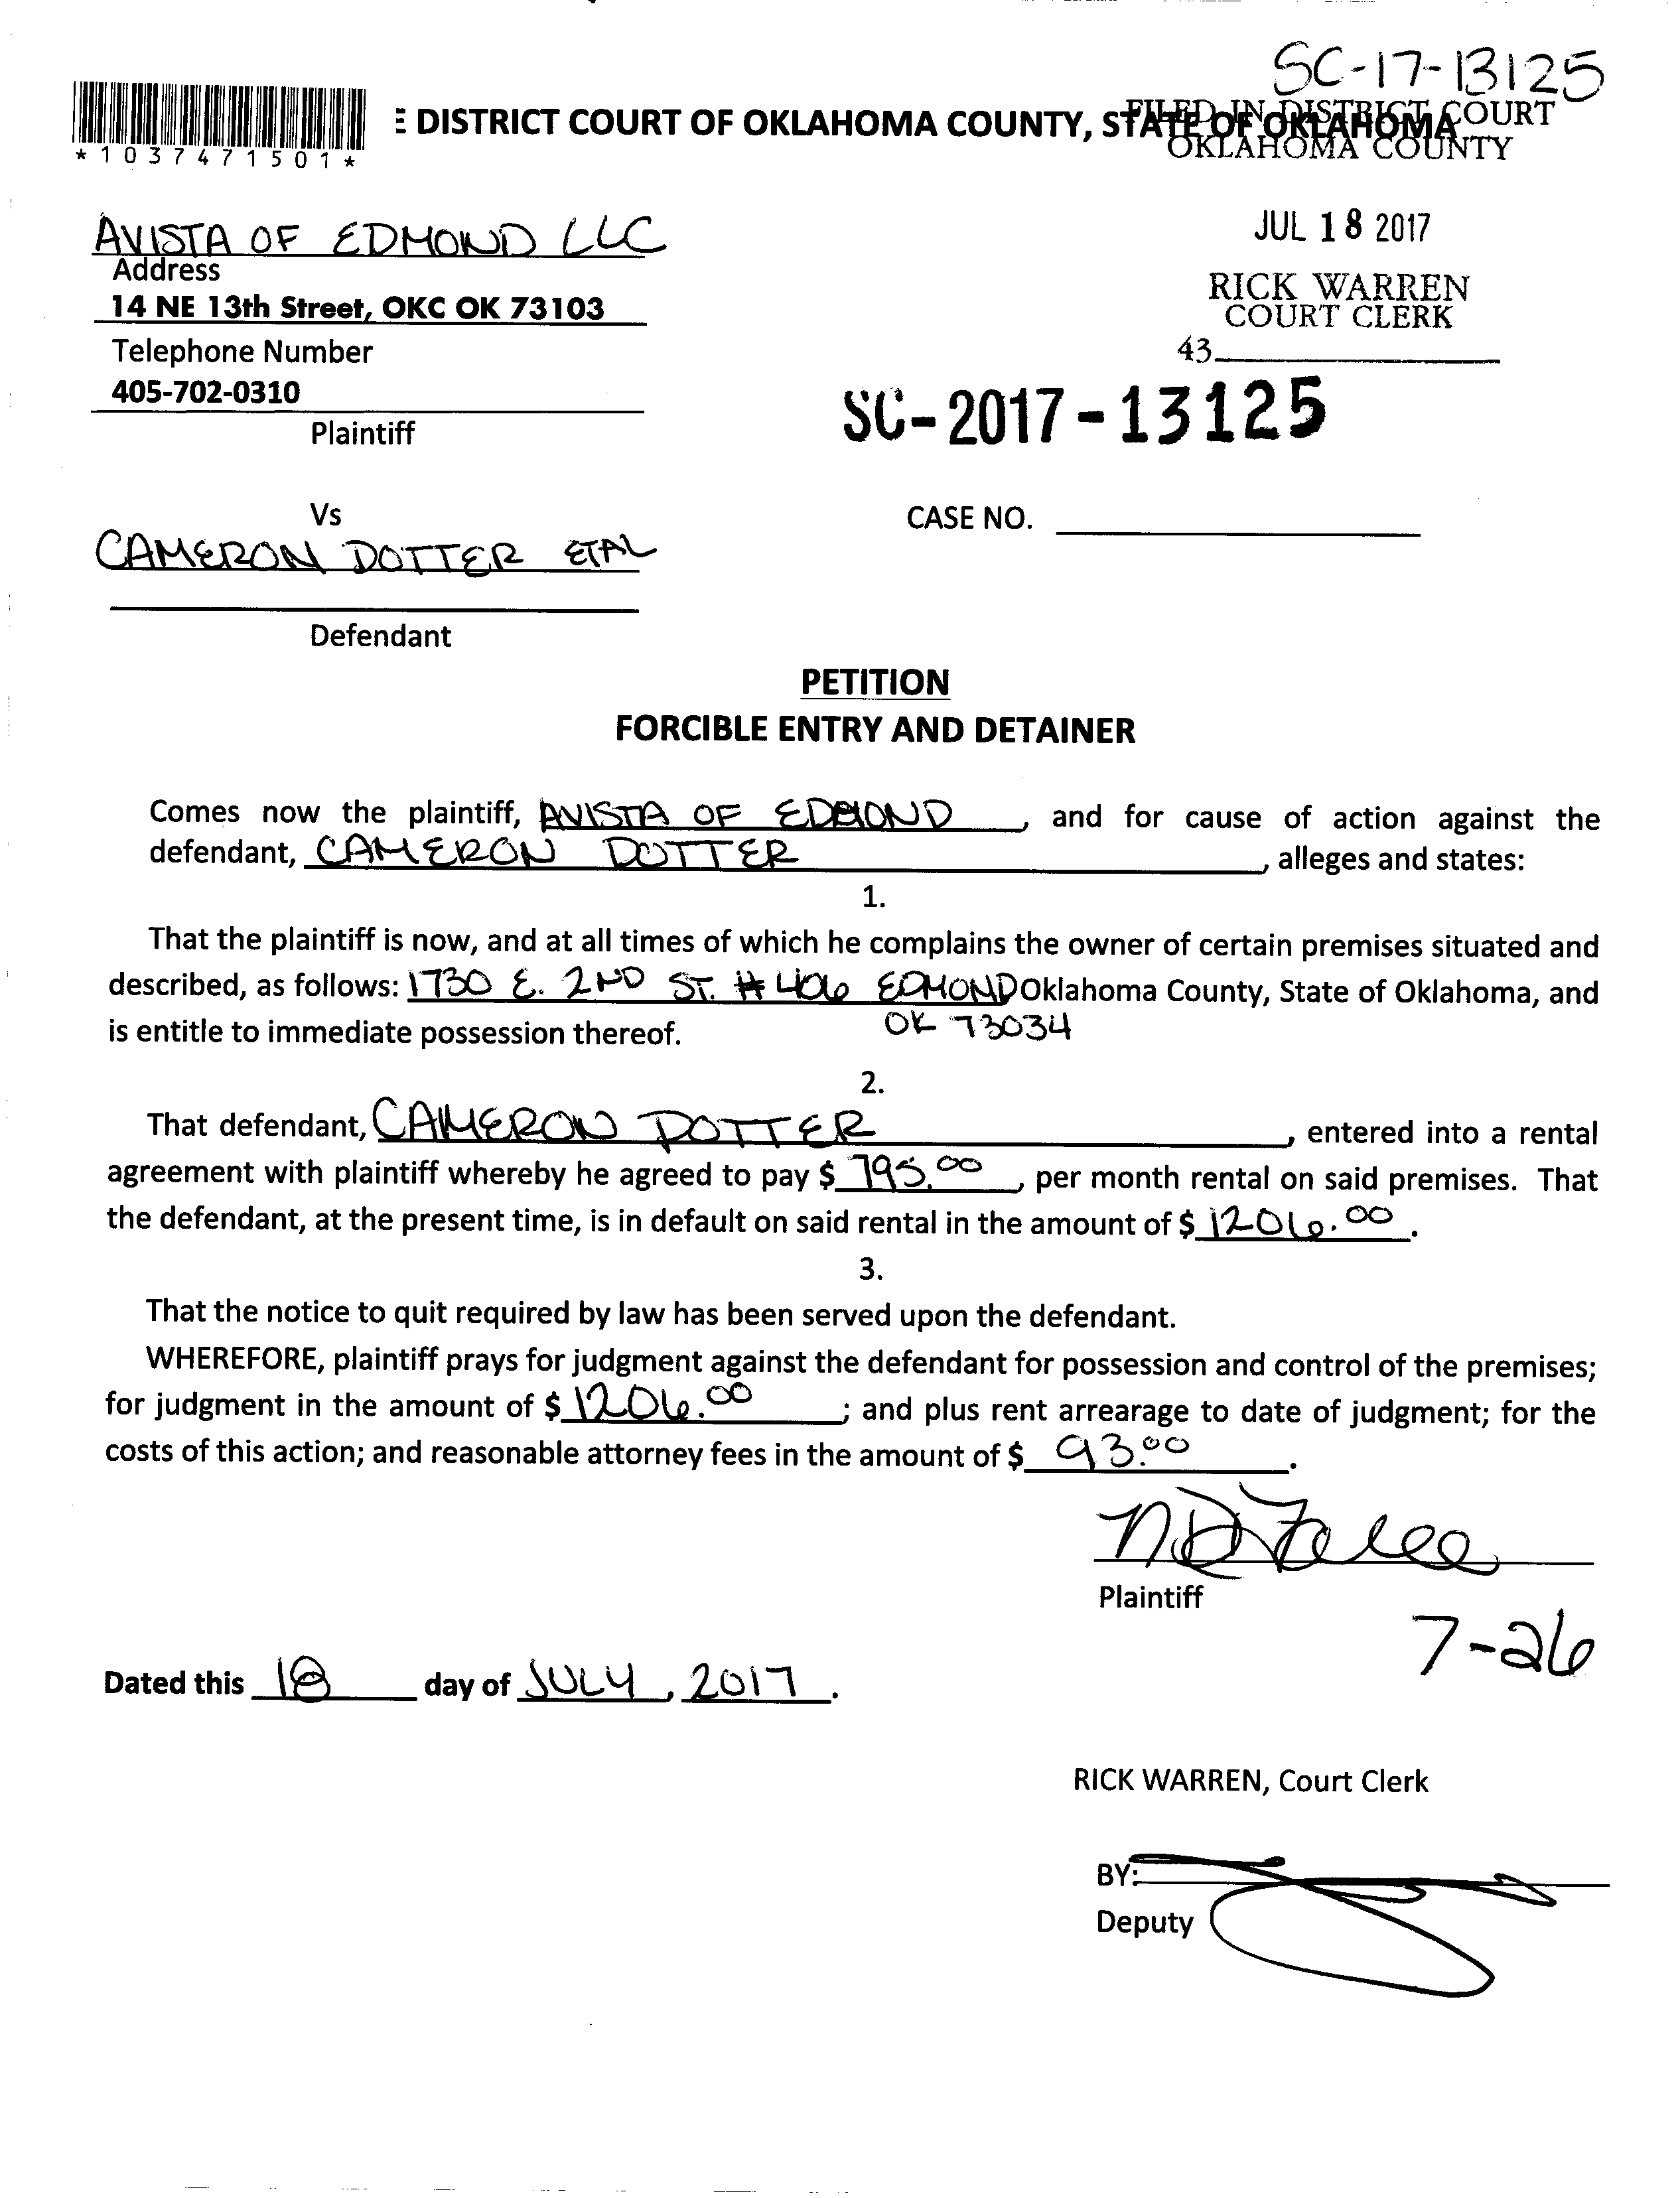 SC-17-13125
E DISTRICT COURT OF OKLAHOMA COUNTY, STATE OF OKLAHOMA
FILED IN DISTRICT COURT
OKLAHOMA COUNTY
*1037471501*
JUL 18 2017
RICK WARREN
COURT CLERK
43
SC-2017-13125
AVISTA OF EDMOND LLC
Address
14 NE 13th Street, OKC OK 73103
Telephone Number
405-702-0310
Plaintiff
Vs
CASE NO.
CAMERON DOTTER ETAL
Defendant
PETITION
FORCIBLE ENTRY AND DETAINER
Comes now the plaintiff, AVISTA OF EDMOND, and for cause of action against the
defendant, CAMERON DOTTER, alleges and states:
1.
That the plaintiff is now, and at all times of which he complains the owner of certain premises situated and
described, as follows: 1730 E. 2ND ST. # 406 EDMOND Oklahoma County, State of Oklahoma, and
is entitle to immediate possession thereof. OK 73034
2.
That defendant, CAMERON DOTTER, entered into a rental
agreement with plaintiff whereby he agreed to pay $ 795.00, per month rental on said premises. That
the defendant, at the present time, is in default on said rental in the amount of $ 1206.00.
3.
That the notice to quit required by law has been served upon the defendant.
WHEREFORE, plaintiff prays for judgment against the defendant for possession and control of the premises;
for judgment in the amount of $ 1206.00; and plus rent arrearage to date of judgment; for the
costs of this action; and reasonable attorney fees in the amount of $ 93.00.
Plaintiff
7-26
Dated this 18 day of JULY, 2017.
RICK WARREN, Court Clerk
BY:
Deputy